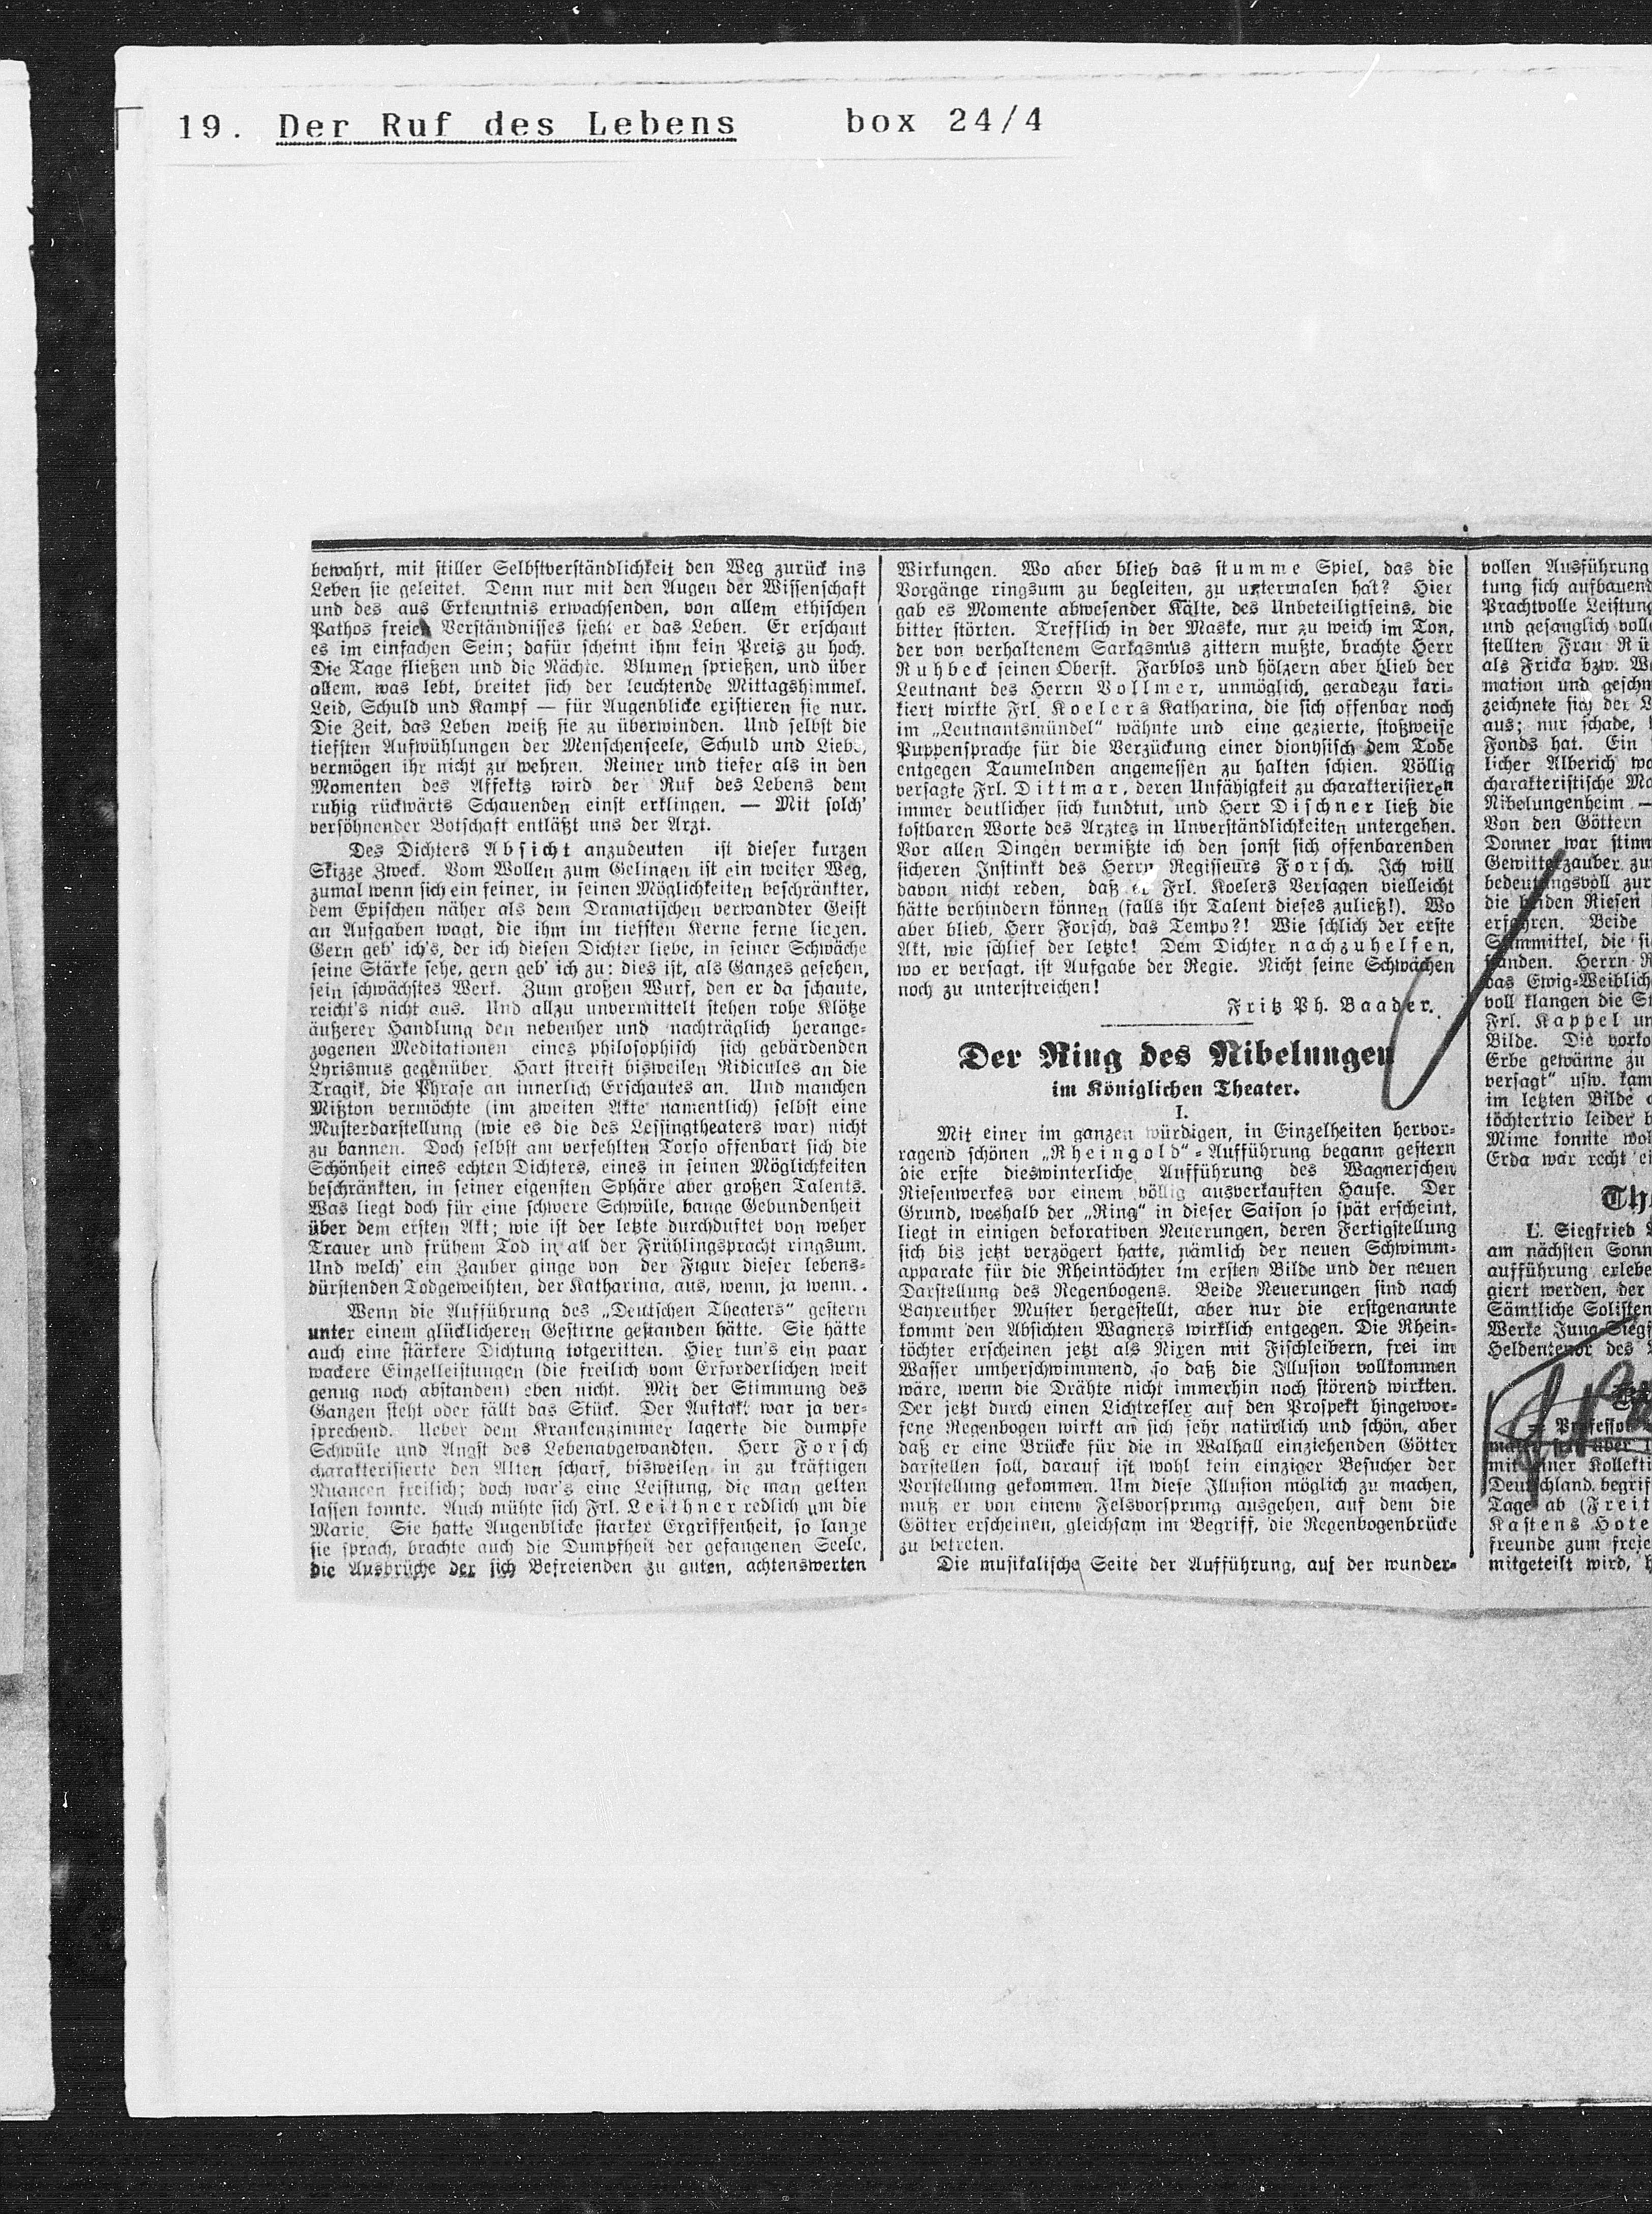 19. Der Ruf des Lebens box 24/4
bewahrt, mit stiller Selbstverständlichkeit den Weg zurück ins
Leben sie geleitet. Denn nur mit den Augen der Wissenschaft
und des aus Erkenntnis erwachsenden, von allem ethischen
Pathos freien Verständnisses sieht er das Leben. Er erschaut
es im einfachen Sein; dafür scheint ihm kein Preis zu hoch.
Die Tage fließen und die Nächte. Blumen sprießen, und über
allem, was lebt, breitet sich der leuchtende Mittagshimmel.
Leid, Schuld und Kampf — für Augenblicke existieren sie nur.
Die Zeit, das Leben weiß sie zu überwinden. Und selbst die
tiefsten Aufwühlungen der Menschenseele, Schuld und Liebe,
vermögen ihr nicht zu wehren. Reiner und tiefer als in den
Momenten des Affekts wird der Ruf des Lebens dem
ruhig rückwärts Schauenden einst erklingen. — Mit solch'
versöhnender Botschaft entläßt uns der Arzt.
Des Dichters Absicht anzudeuten ist dieser kurzen
Skizze Zweck. Vom Wollen zum Gelingen ist ein weiter Weg,
zumal wenn sich ein feiner, in seinen Möglichkeiten beschränkter,
dem Epischen näher als dem Dramatischen verwandter Geist
an Aufgaben wagt, die ihm im tiefsten Kerne ferne liegen.
Gern geb' ich's, der ich diesen Dichter liebe, in seiner Schwäche
seine Stärke sehe, gern geb' ich zu: dies ist, als Ganzes gesehen,
sein schwächstes Werk. Zum großen Wurf, den er da schaute,
reicht's nicht aus. Und allzu unvermittelt stehen rohe Klötze
äußerer Handlung den nebenher und nachträglich herange-
zogenen Meditationen eines philosophisch sich gebärdenden
Lyrismus gegenüber. Hart streift bisweilen Ridicules an die
Tragik, die Phrase an innerlich Erschautes an. Und manchen
Mißton vermöchte (im zweiten Akte namentlich) selbst eine
Musterdarstellung (wie es die des Lessingtheaters war) nicht
zu bannen. Doch selbst am verfehlten Torso offenbart sich die
Schönheit eines echten Dichters, eines in seinen Möglichkeiten
beschränkten, in seiner eigensten Sphäre aber großen Talents.
Was liegt doch für eine schwere Schwüle, bange Gebundenheit
über dem ersten Akt; wie ist der letzte durchduftet von weher
Trauer und frühem Tod in all der Frühlingspracht ringsum.
Und welch' ein Zauber ginge von der Figur dieser lebens-
dürstenden Todgeweihten, der Katharina, aus, wenn, ja wenn..
Wenn die Aufführung des „Deutschen Theaters" gestern
unter einem glücklicheren Gestirne gestanden hätte. Sie hätte
auch eine stärkere Dichtung totgeritten. Hier tun's ein paar
wackere Einzelleistungen (die freilich vom Erforderlichen weit
genug noch abstanden) eben nicht. Mit der Stimmung des
Ganzen steht oder fällt das Stück. Der Auftakt war ja ver-
sprechend. Ueber dem Krankenzimmer lagerte die dumpfe
Schwüle und Angst des Lebenabgewandten. Herr Forsch
charakterisierte den Alten scharf, bisweilen in zu kräftigen
Nuancen freilich; doch war's eine Leistung, die man gelten
lassen konnte. Auch mühte sich Frl. Leithner redlich um die
Marie. Sie hatte Augenblicke starker Ergriffenheit, so lange
sie sprach, brachte auch die Dumpfheit der gefangenen Seele,
die Ausbrüche der sich Befreienden zu guten, achtenswerten
Wirkungen. Wo aber blieb das stumme Spiel, das die
Vorgänge ringsum zu begleiten, zu untermalen hat? Hier
gab es Momente abwesender Kälte, des Unbeteiligtseins, die
bitter störten. Trefflich in der Maske, nur zu weich im Ton,
der von verhaltenem Sarkasmus zittern mußte, brachte Herr
Ruhbeck seinen Oberst. Farblos und hölzern aber blieb der
Leutnant des Herrn Vollmer, unmöglich, geradezu kari-
kiert wirkte Frl. Koelers Katharina, die sich offenbar noch
im „Leutnantsmündel" wähnte und eine gezierte, stoßweise
Puppensprache für die Verzückung einer dionysisch dem Tode
entgegen Taumelnden angemessen zu halten schien. Völlig
versagte Frl. Dittmar, deren Unfähigkeit zu charakterisieren
immer deutlicher sich kundtut, und Herr Dischner ließ die
kostbaren Worte des Arztes in Unverständlichkeiten untergehen.
Vor allen Dingen vermißte ich den sonst sich offenbarenden
sicheren Instinkt des Herrn Regisseurs Forsch. Ich will
davon nicht reden, daß er Frl. Koelers Versagen vielleicht
hätte verhindern können (falls ihr Talent dieses zuließ!). Wo
aber blieb, Herr Forsch, das Tempo?! Wie schlich der erste
Akt, wie schlief der letzte! Dem Dichter nachzuhelfen,
wo er versagt, ist Aufgabe der Regie. Nicht seine Schwächen
noch zu unterstreichen!
Fritz Ph. Baader.
Der Ring des Nibelungen
im Königlichen Theater.
I.
Mit einer im ganzen würdigen, in Einzelheiten hervor-
ragend schönen „Rheingold"-Aufführung begann gestern
die erste dieswinterliche Aufführung des Wagnerschen
Riesenwerkes vor einem völlig ausverkauften Hause. Der
Grund, weshalb der „Ring" in dieser Saison so spät erscheint,
liegt in einigen dekorativen Neuerungen, deren Fertigstellung
sich bis jetzt verzögert hatte, nämlich der neuen Schwimm-
apparate für die Rheintöchter im ersten Bilde und der neuen
Darstellung des Regenbogens. Beide Neuerungen sind nach
Bayreuther Muster hergestellt, aber nur die erstgenannte
kommt den Absichten Wagners wirklich entgegen. Die Rhein-
töchter erscheinen jetzt als Nixen mit Fischleibern, frei im
Wasser umherschwimmend, so daß die Illusion vollkommen
wäre, wenn die Drähte nicht immerhin noch störend wirkten.
Der jetzt durch einen Lichtreflex auf den Prospekt hingewor-
fene Regenbogen wirkt an sich sehr natürlich und schön, aber
daß er eine Brücke für die in Walhall einziehenden Götter
darstellen soll, darauf ist wohl kein einziger Besucher der
Vorstellung gekommen. Um diese Illusion möglich zu machen,
muß er von einem Felsvorsprung ausgehen, auf dem die
Götter erscheinen, gleichsam im Begriff, die Regenbogenbrücke
zu betreten.
Die musikalische Seite der Aufführung, auf der wunder-
vollen Ausführung
tung sich aufbauend
Prachtvolle Leistung
und gesanglich voll
stellten Frau Rü
als Fricka bzw. W
mation und geschm
zeichnete sich der L
aus; nur schade,
Fonds hat. Ein
licher Alberich wa
charakteristische Ma
Nibelungenheim —
Von den Göttern
Donner war stimm
Gewitterzauber zu
bedeutungsvoll zur
die beiden Riesen
erfahren. Beide
Stimmittel, die si
standen. Herrn R
das Ewig-Weiblich
voll klangen die St
Frl. Kappel un
Bilde. Die vorko
Erbe gewänne zu
versagt" usw. kam
im letzten Bilde
töchtertrio leider
Mime konnte wohl
Erda war recht ei
Th
L. Siegfried
am nächsten Sonn
aufführung erlebe
giert werden, der
Sämtliche Solisten
Werke Jung-Siegf
Heldentenor des
Professor
über
mit einer Kollekti
Deutschland, begrif
Tage ab (Freit
Kastens Hote
freunde zum freie
mitgeteilt wird,